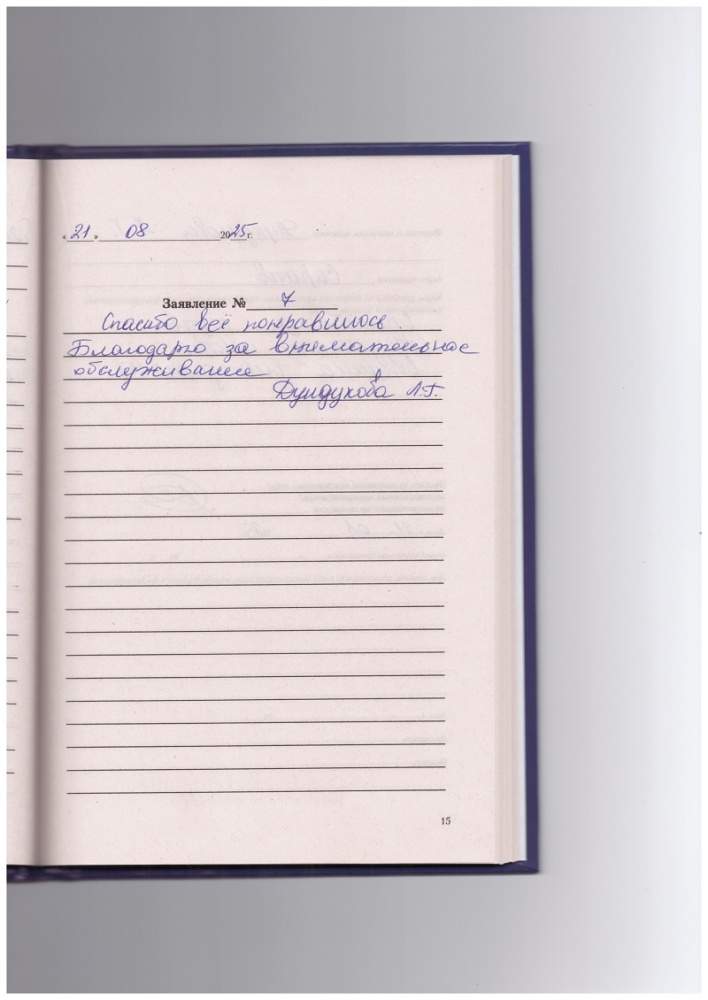 « 21 » 08 2025 г.
Заявление № 7
Спасибо всё понравилось.
Благодарю за внимательное
обслуживание
Дундукова Л.Г.
15